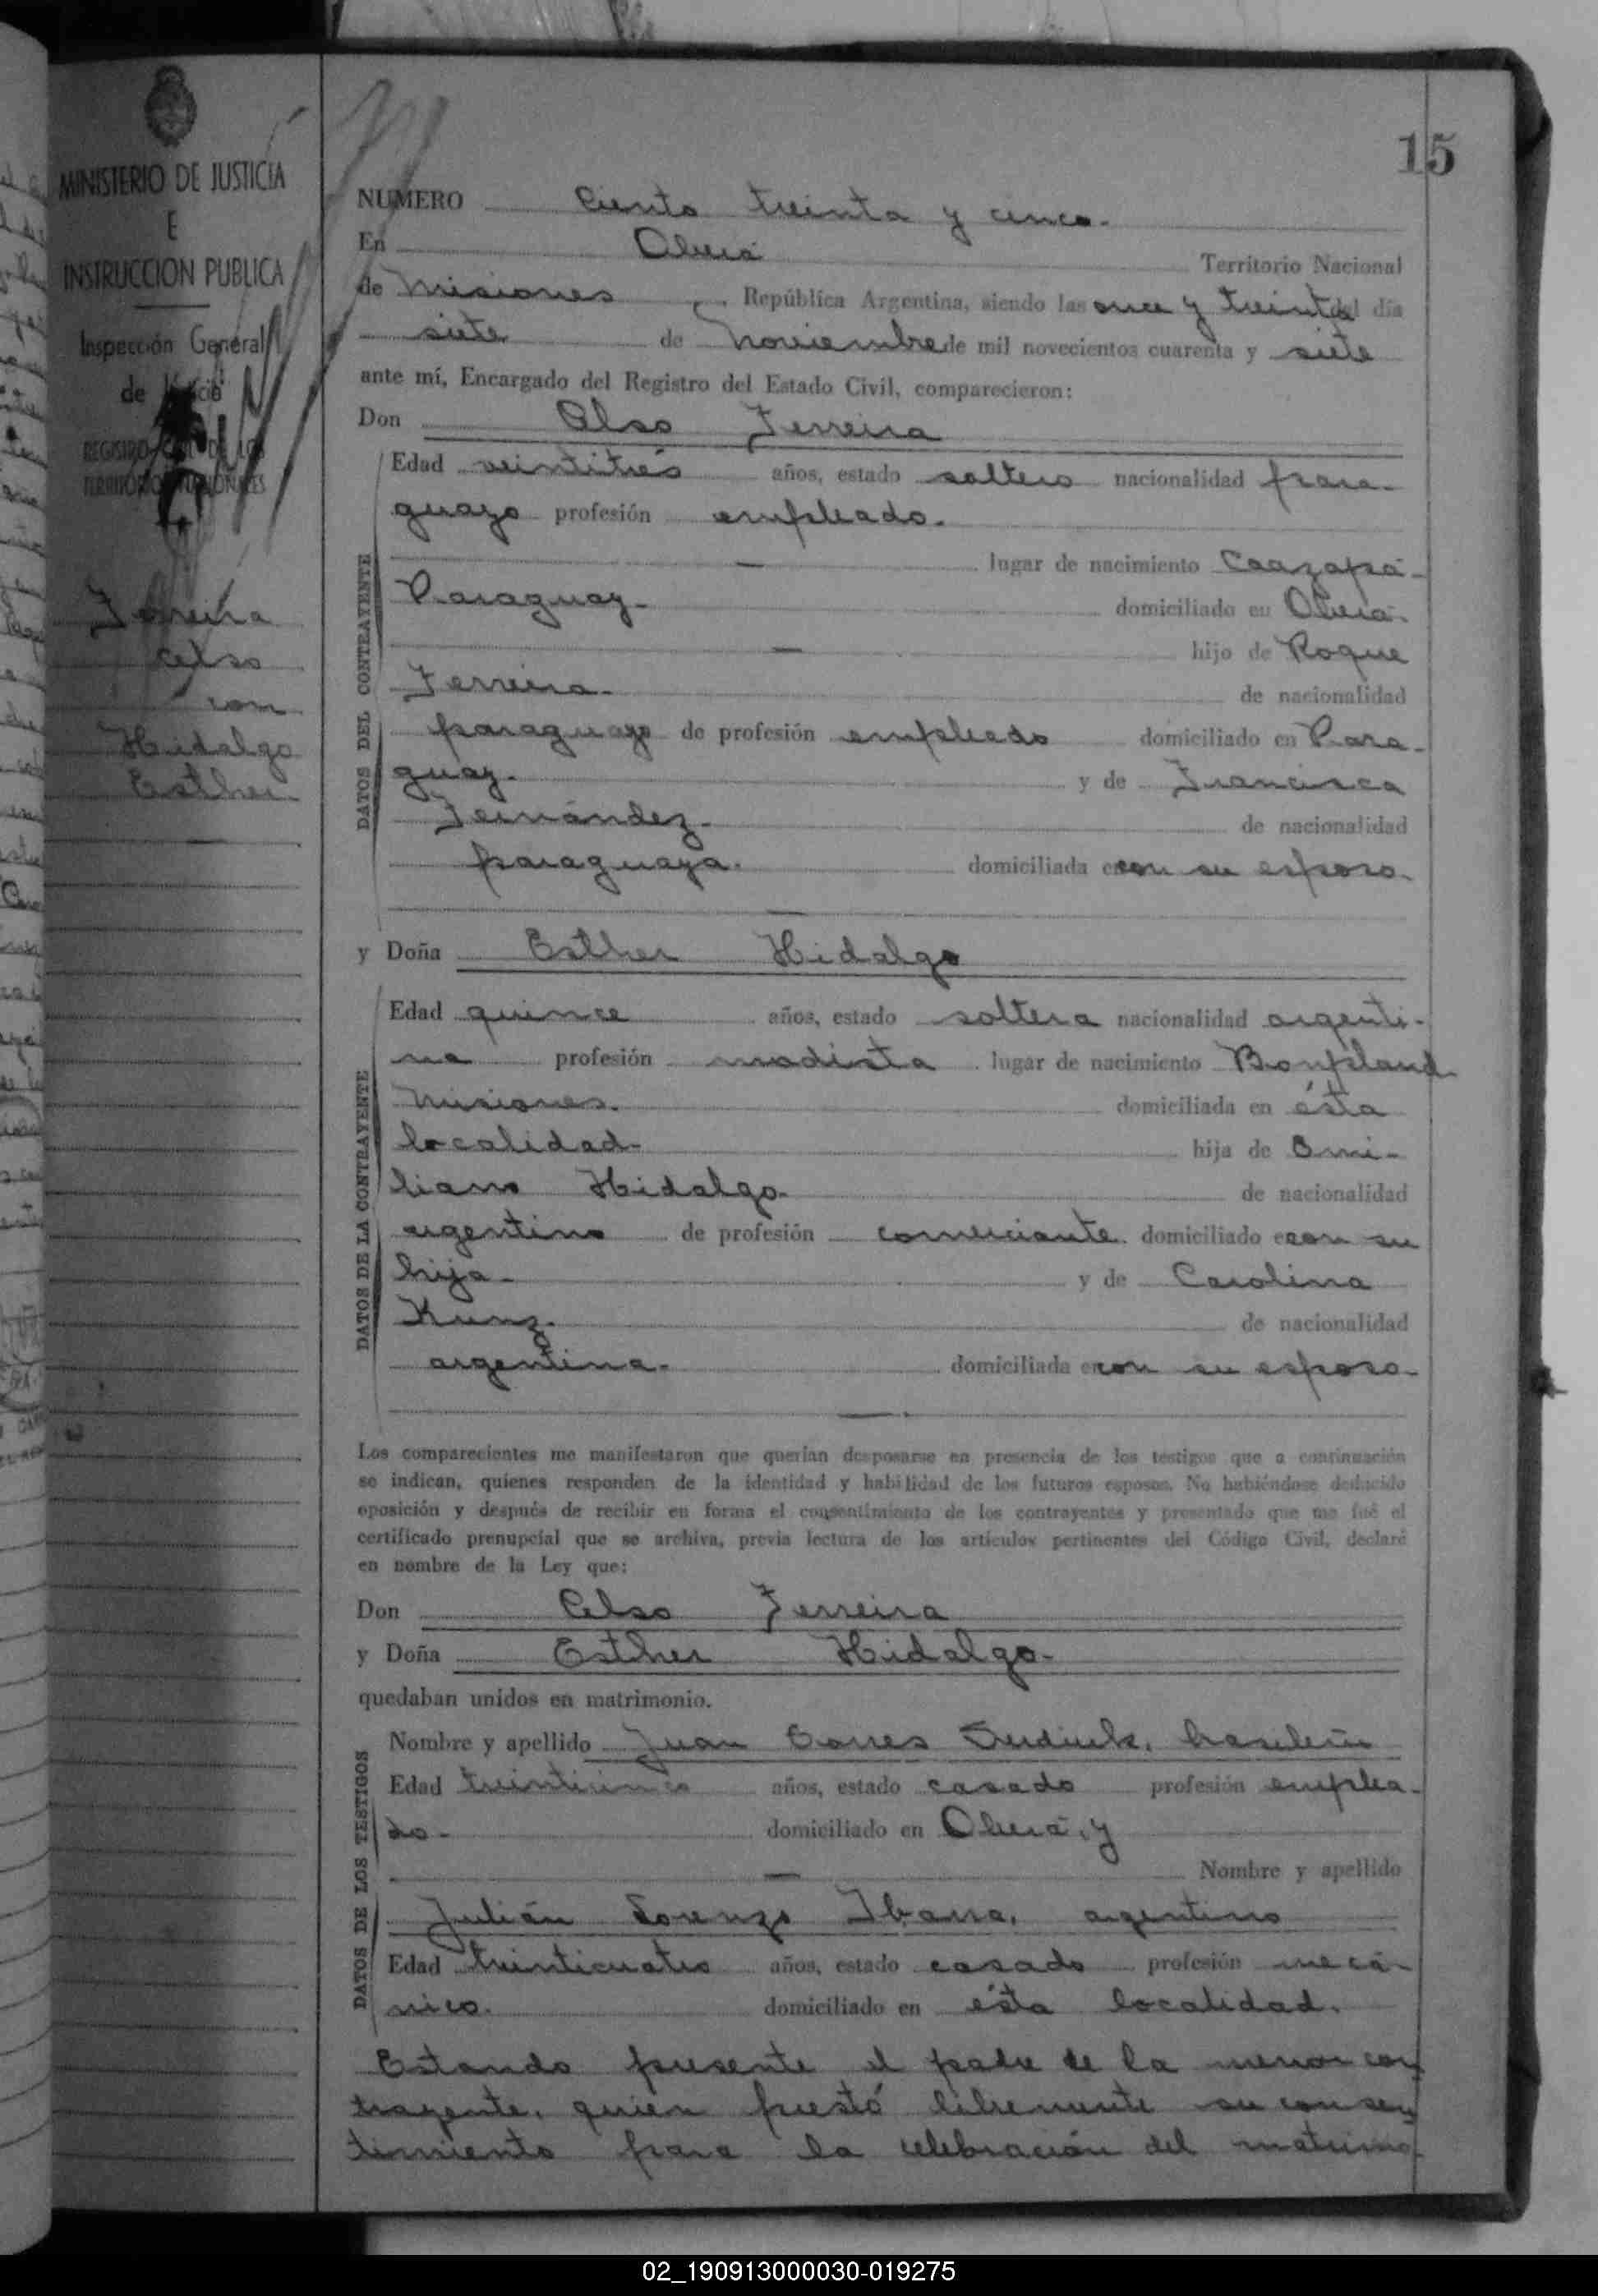 15
MINISTERIO DE JUSTICIA
E
INSTRUCCION PUBLICA
Inspección General
de
REGISTRO DE LOS
TERRITORIOS NACIONALES
Ferreira
Celso
con
Hidalgo
Esther
NUMERO Ciento treinta y cinco.
En Oberá Territorio Nacional
de Misiones, República Argentina, siendo las once y treinta del día
siete de Noviembre de mil novecientos cuarenta y siete
ante mí, Encargado del Registro del Estado Civil, comparecieron:
Don Celso Ferreira
DATOS DEL CONTRAYENTE
Edad veintitrés años, estado soltero nacionalidad para-
guayo profesión empleado.
— lugar de nacimiento Caazapá-
Paraguay- domiciliado en Oberá.
— hijo de Roque
Ferreira. de nacionalidad
paraguayo de profesión empleado domiciliado en Para-
guay. y de Francisca
Fernández- de nacionalidad
paraguaya. domiciliada en con su esposo.
—
y Doña Esther Hidalgo
DATOS DE LA CONTRAYENTE
Edad quince años, estado soltera nacionalidad argenti-
na profesión modista lugar de nacimiento Bonpland
Misiones. domiciliada en ésta
localidad- hija de Emi-
liano Hidalgo. de nacionalidad
argentino de profesión comerciante domiciliado en con su
hija- y de Carolina
Kunz. de nacionalidad
argentina. domiciliada en con su esposo-
—
Los comparecientes me manifestaron que querían desposarse en presencia de los testigos que a continuación
se indican, quienes responden de la identidad y habilidad de los futuros esposos. No habiéndose deducido
oposición y después de recibir en forma el consentimiento de los contrayentes y presentado que me fué el
certificado prenupcial que se archiva, previa lectura de los artículos pertinentes del Código Civil, declaré
en nombre de la Ley que:
Don Celso Ferreira
y Doña Esther Hidalgo-
quedaban unidos en matrimonio.
DATOS DE LOS TESTIGOS
Nombre y apellido Juan brasileño
Edad treinticinco años, estado casado profesión emplea-
do- domiciliado en Oberá, y
— Nombre y apellido
Julián Lorenzo Ibarra, argentino
Edad treinticuatro años, estado casado profesión mecá-
nico. domiciliado en ésta localidad.
Estando presente el padre de la menor con
trayente, quien prestó libremente su consen
timiento para la celebración del matrimo-
02_190913000030-019275